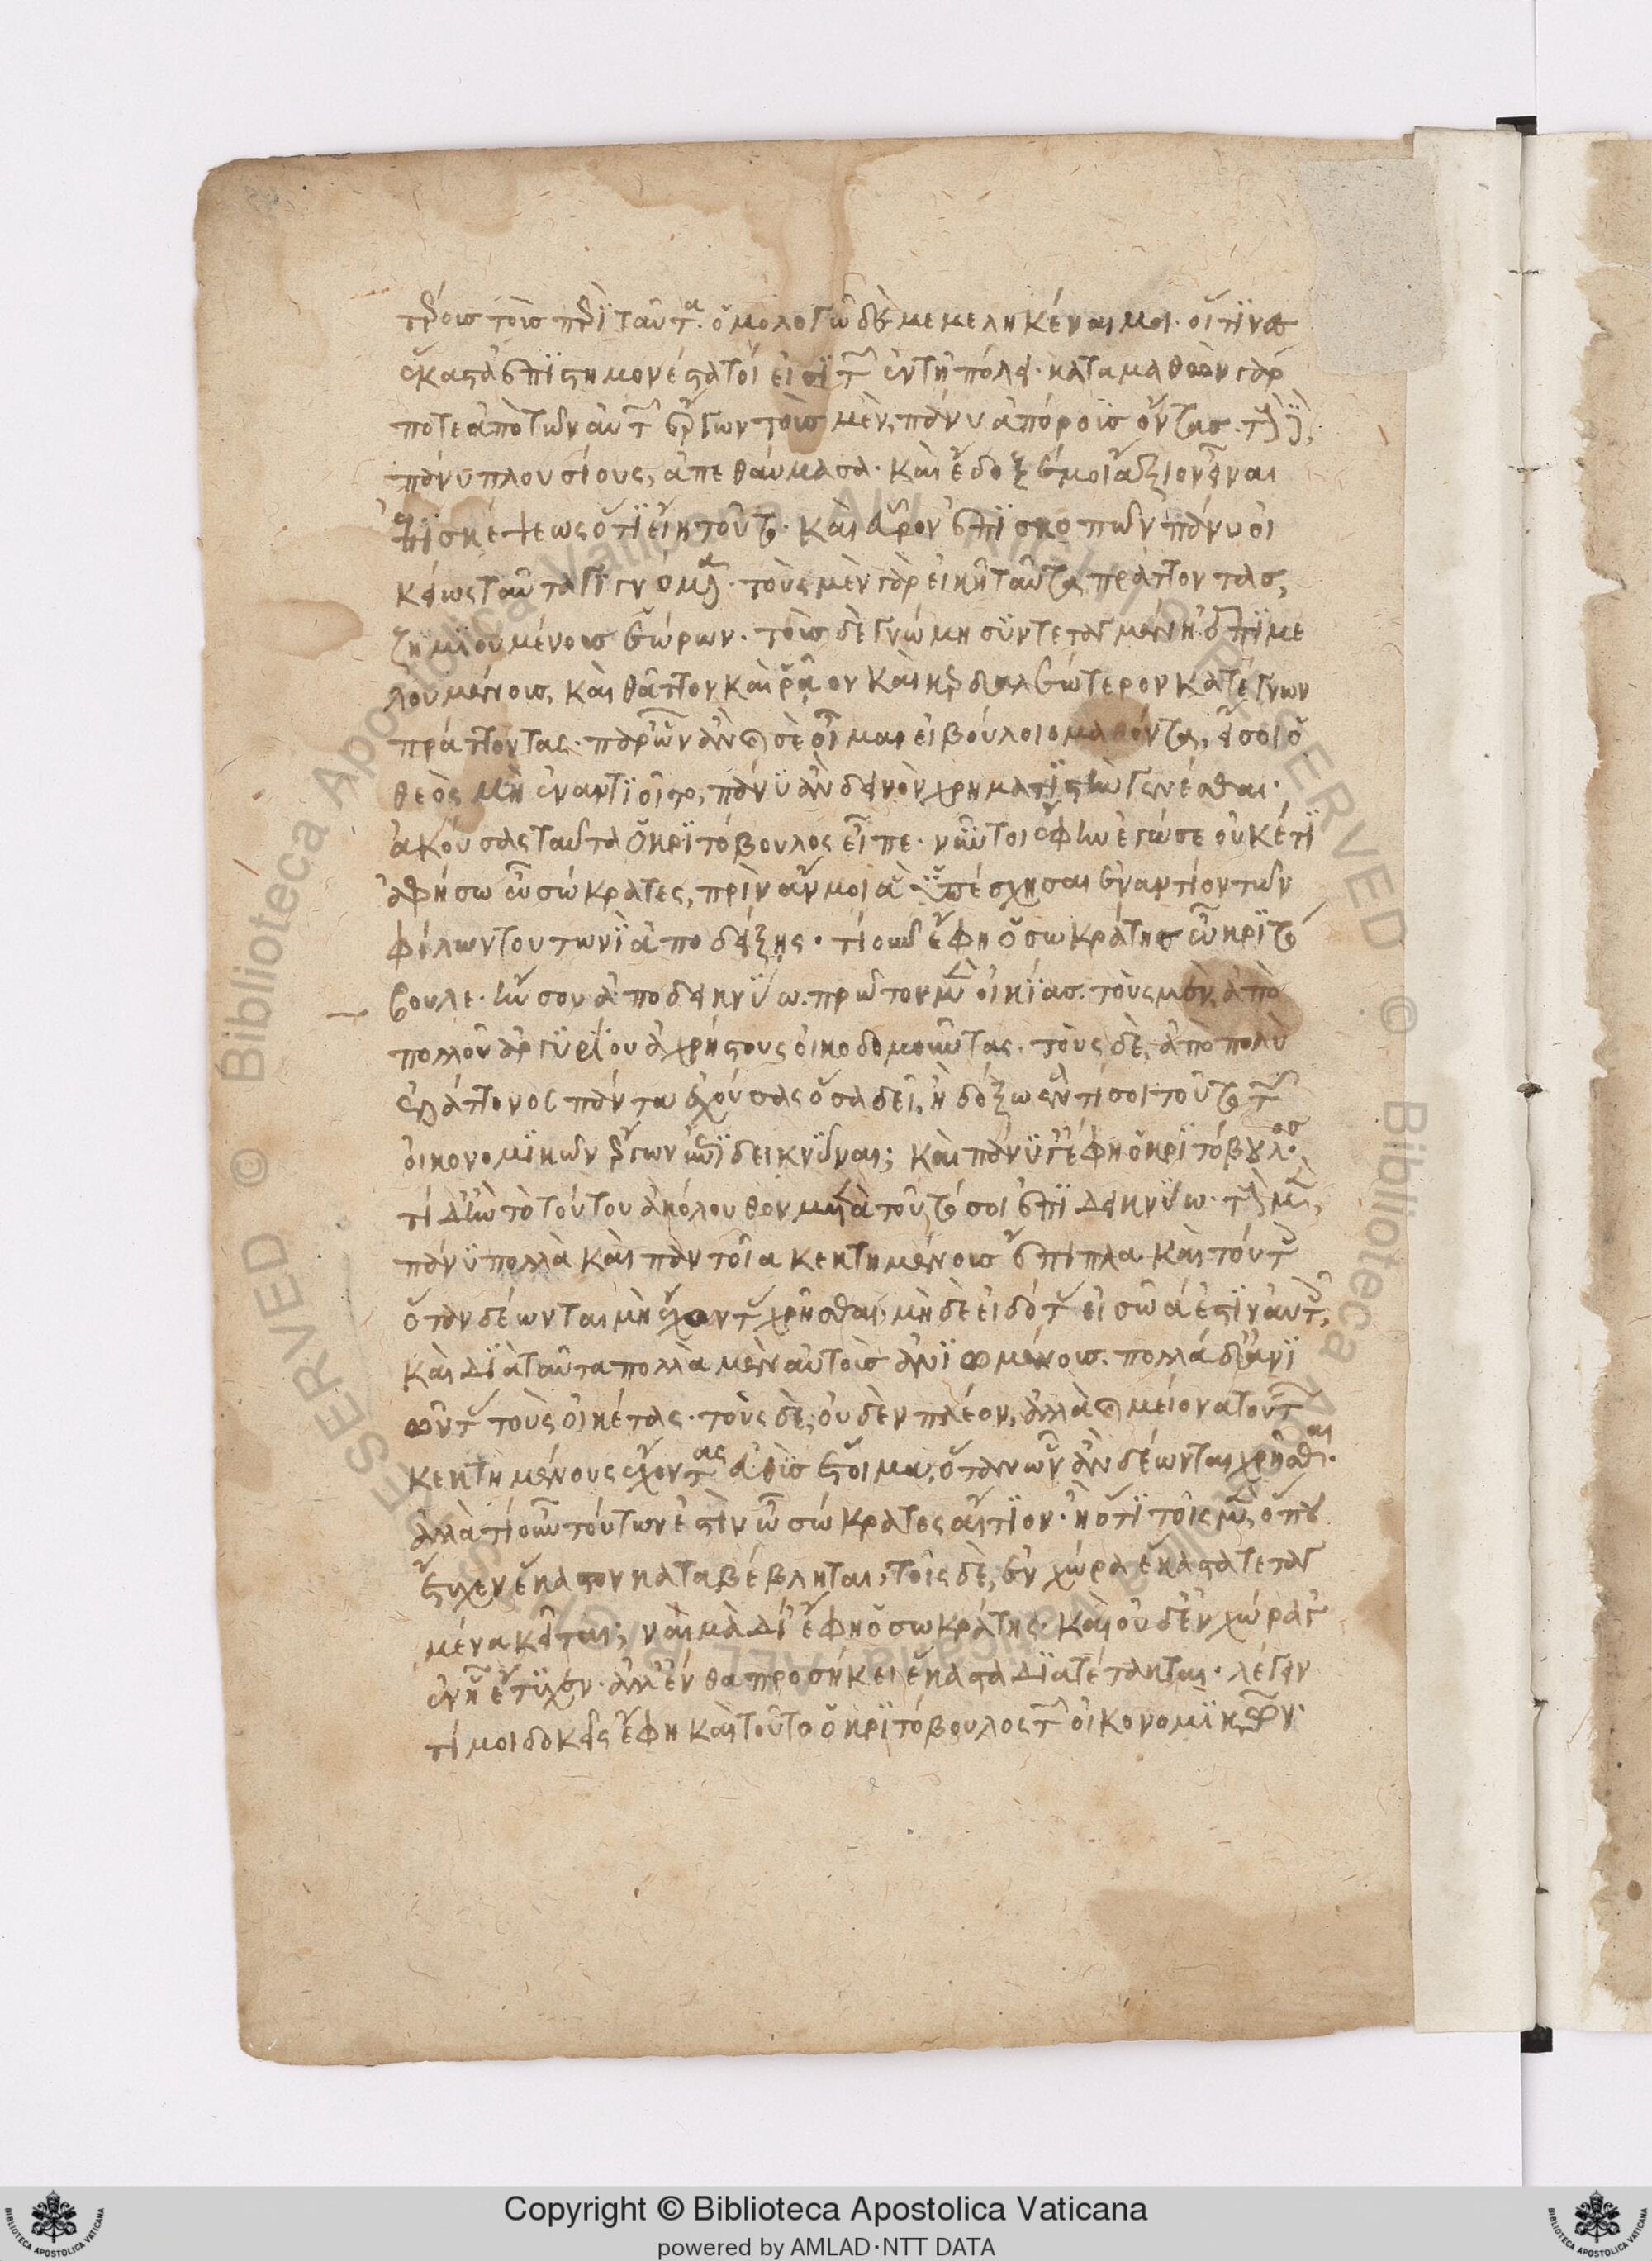 τέροις τοῖς περὶ ταῦτα. ὁμολογῶ δὲ μεμεληκέναι μοι. οἵτινες
ἕκαστα ἐπιστημονέστατοί εἰσι τῶν ἐν τῇ πόλει. καταμαθὼν γὰρ
ποτε ἀπὸ τῶν αὐτῶν ἔργων τοὺς μὲν, πάνυ ἀπόρους ὄντας. τοὺς δὲ,
πάνυ πλουσίους, ἀπεθαύμασα. καὶ ἔδοξέ μοι ἄξιον εἶναι
ἐπισκέψεως ὅτι εἴη τοῦτο. καὶ εὗρον ἐπισκοπῶν πάνυ οἰ
κείως ταῦτα γιγνόμενα. τοὺς μὲν γὰρ εἰκῇ ταῦτα πράττοντας,
ζημιουμένους ἑώρων. τοὺς δὲ γνώμῃ συντεταγμένῃ ἐπιμε
λουμένους, καὶ θᾶττον καὶ ῥᾷον καὶ κερδαλεώτερον κατέγνων
πράττοντας. παρ' ὧν ἂν καὶ σὲ οἶμαι εἰ βούλοιο μαθόντα, εἴ σοι ὁ
θεὸς μὴ ἐναντιοῖτο, πάνυ ἂν δεινὸν χρηματιστὴν γενέσθαι.
ἀκούσας ταῦτα ὁ κριτόβουλος εἶπε. νῦν τοι ἔφη ἐγώ σε οὐκέτι
ἀφήσω ὦ σώκρατες, πρὶν ἄν μοι ἃ ὑπέσχησαι ἐναντίον τῶν
φίλων τουτωνὶ ἀποδείξῃς. τί οὖν ἔφη ὁ σωκράτης ὦ κριτό
βουλε. ἤν σου ἀποδεικνύω. πρῶτον μὲν οἰκίας. τοὺς μὲν, ἀπὸ
πολλοῦ ἀργυρίου ἀχρήστους οἰκοδομοῦντας. τοὺς δὲ, ἀπὸ πολὺ
ἐλάττονος πάντα ἐχούσας ὅσα δεῖ, ἦ δόξω ἕν τί σοι τοῦτο τῶν
οἰκονομικῶν ἔργων ἐπιδεικνύναι; καὶ πάνυ γ' ἔφη ὁ κριτόβουλος.
τί δ' ἢν τὸ τούτου ἀκόλουθον μετὰ τοῦτό σοι ἐπιδεικνύω. τοὺς μὲν,
πάνυ πολλὰ καὶ παντοῖα κεκτημένους ἔπιπλα. καὶ τούτοις
ὅταν δέωνται μὴ ἔχοντας χρῆσθαι, μηδὲ εἰδότας εἰ σῶά ἐστιν αὐτοῖς,
καὶ διὰ ταῦτα πολλὰ μὲν αὐτοὺς ἀνιωμένους. πολλὰ δ' ἀνι
ῶντας τοὺς οἰκέτας. τοὺς δὲ, οὐδὲν πλέον, ἀλλὰ καὶ μείονα τούτων
κεκτημένους ἔχοντας εὐθὺς ἕτοιμα, ὅταν ὧν ἂν δέωνται χρῆσθαι.
ἀλλὰ τί οὖν τούτων ἐστὶν ὦ σώκρατες αἴτιον. ἢ ὅτι τοῖς μὲν, ὅπου
ἔτυχεν ἕκαστον καταβέβληται, τοῖς δὲ, ἐν χώρᾳ ἕκαστα τεταγ
μένα κεῖται; ναὶ μὰ δί' ἔφη ὁ σωκράτης. καὶ οὐδ' ἐν χώρᾳ γ'
ἐν ᾗ ἔτυχεν. ἀλλ' ἔνθα προσήκει ἕκαστα διατέτακται. λέγειν
τί μοι δοκεῖς ἔφη καὶ τοῦτο ὁ κριτόβουλος τῶν οἰκονομικῶν.
Copyright © Biblioteca Apostolica Vaticana
powered by AMLAD·NTT DATA